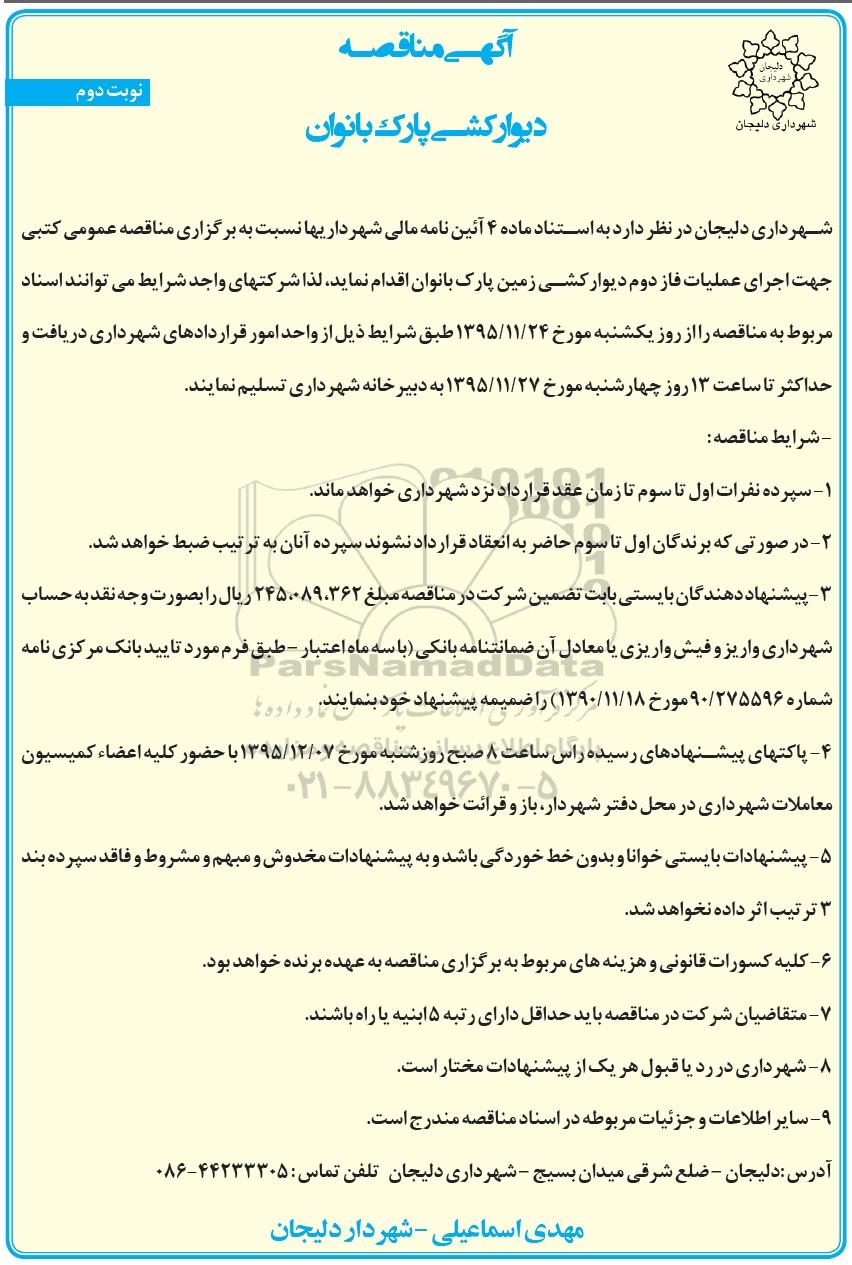 آگهی مناقصه
دلیجان
شهرداری
شهرداری دلیجان
نوبت دوم
دیوارکشی پارک بانوان
شهرداری دلیجان در نظر دارد به استناد ماده ۴ آئین نامه مالی شهرداریها نسبت به برگزاری مناقصه عمومی کتبی
جهت اجرای عملیات فاز دوم دیوارکشی زمین پارک بانوان اقدام نماید، لذا شرکتهای واجد شرایط می توانند اسناد
مربوط به مناقصه را از روز یکشنبه مورخ ۱۳۹۵/۱۱/۲۴ طبق شرایط ذیل از واحد امور قراردادهای شهرداری دریافت و
حداکثر تا ساعت ۱۳ روز چهارشنبه مورخ ۱۳۹۵/۱۱/۲۷ به دبیرخانه شهرداری تسلیم نمایند.
- شرایط مناقصه:
۱- سپرده نفرات اول تا سوم تا زمان عقد قرارداد نزد شهرداری خواهد ماند.
۲- در صورتی که برندگان اول تا سوم حاضر به انعقاد قرارداد نشوند سپرده آنان به ترتیب ضبط خواهد شد.
۳- پیشنهاد دهندگان بایستی بابت تضمین شرکت در مناقصه مبلغ ۲۴۵،۰۸۹،۳۶۲ ریال را بصورت وجه نقد به حساب
شهرداری واریز و فیش واریزی یا معادل آن ضمانتنامه بانکی (با سه ماه اعتبار - طبق فرم مورد تایید بانک مرکزی نامه
شماره ۹۰/۲۷۵۵۹۶ مورخ ۱۳۹۰/۱۱/۱۸) را ضمیمه پیشنهاد خود بنمایند.
۴- پاکتهای پیشنهادهای رسیده راس ساعت ۸ صبح روز شنبه مورخ ۱۳۹۵/۱۲/۰۷ با حضور کلیه اعضاء کمیسیون
معاملات شهرداری در محل دفتر شهردار، باز و قرائت خواهد شد.
۵- پیشنهادات بایستی خوانا و بدون خط خوردگی باشد و به پیشنهادات مخدوش و مبهم و مشروط و فاقد سپرده بند
۳ ترتیب اثر داده نخواهد شد.
۶- کلیه کسورات قانونی و هزینه های مربوط به برگزاری مناقصه به عهده برنده خواهد بود.
۷- متقاضیان شرکت در مناقصه باید حداقل دارای رتبه ۵ ابنیه یا راه باشند.
۸- شهرداری در رد یا قبول هر یک از پیشنهادات مختار است.
۹- سایر اطلاعات و جزئیات مربوطه در اسناد مناقصه مندرج است.
آدرس: دلیجان - ضلع شرقی میدان بسیج - شهرداری دلیجان تلفن تماس: ۴۴۲۳۳۳۰۵-۰۸۶
مهدی اسماعیلی - شهردار دلیجان
ParsNamadData
۰۲۱-۸۸۳۴۹۶۷۰-۵